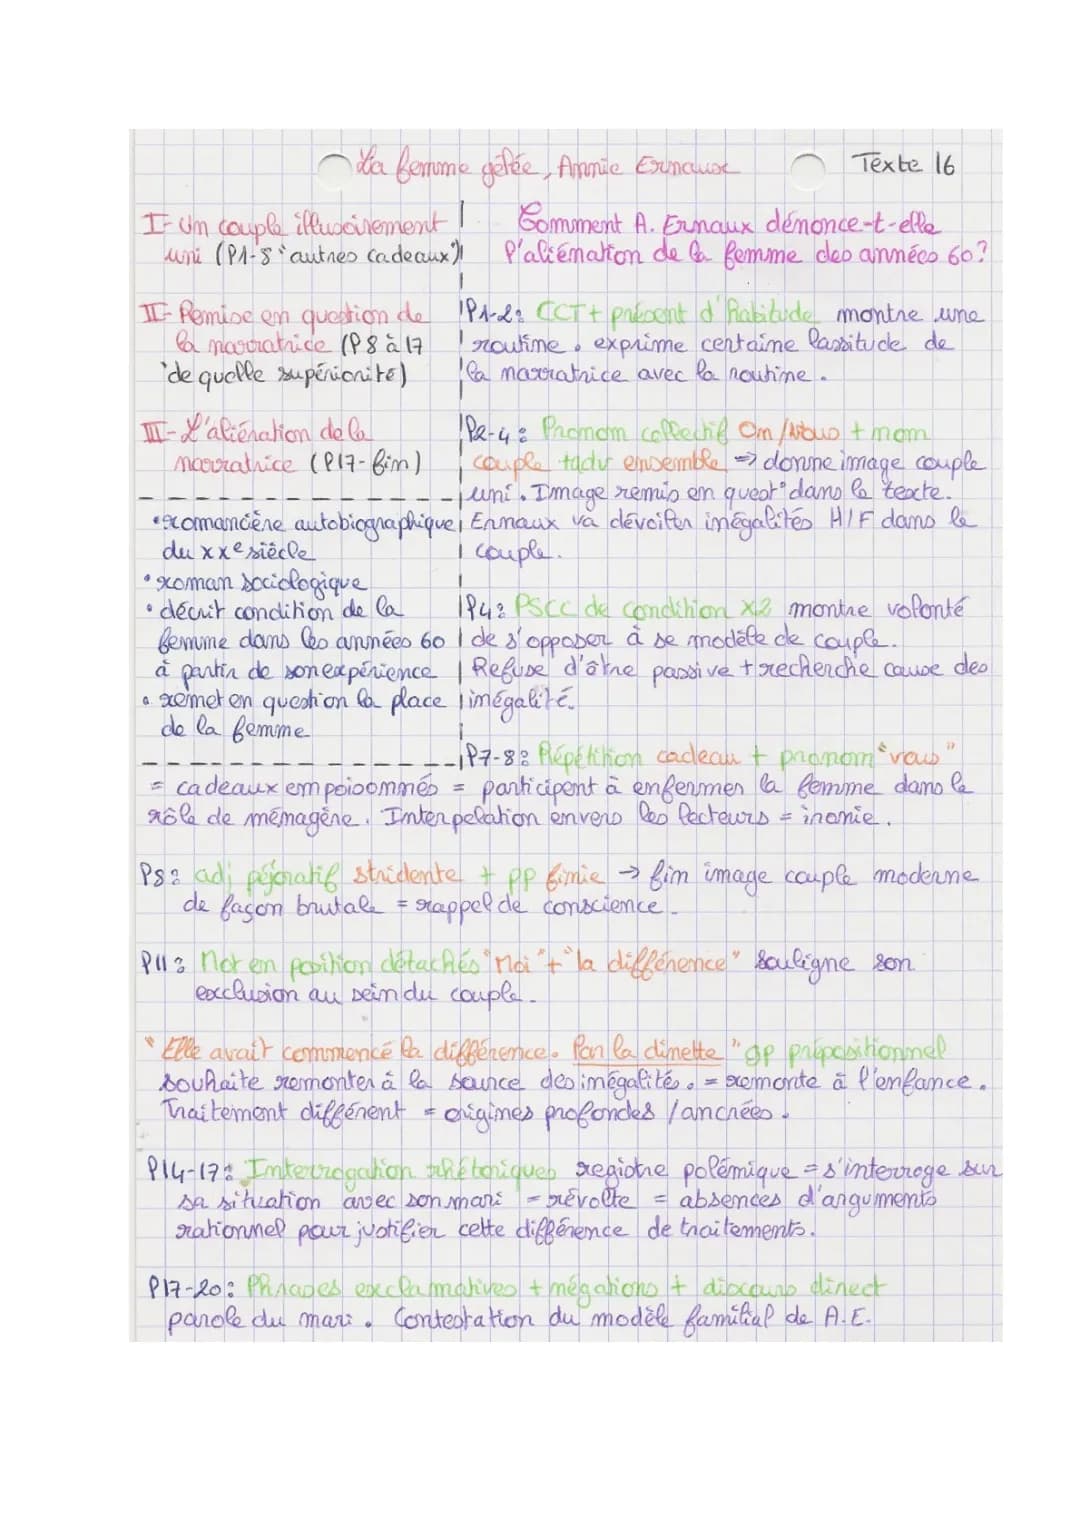 La femme gelée, Annie Ernaux
Texte 16
I- Un couple illusoirement
uni (l1-8 "autres cadeaux")
II- Remise en question de
la narratrice (l8 à 17
"de quelle supériorité)
III- L'aliénation de la
narratrice (l17-fin)
• romancière autobiographique
du XXe siècle
• roman sociologique
• décrit condition de la
femme dans les années 60
à partir de son expérience
• remet en question la place
de la femme
Comment A. Ernaux dénonce-t-elle
l'aliénation de la femme des années 60?
l1-2: CCT + présent d'habitude montre une
routine. exprime certaine lassitude de
la narratrice avec la routine.
l2-4: Pronom collectif On/Nous + nom
couple + adv ensemble => donne image couple
uni. Image remis en quest° dans le texte.
Ernaux va dévoiler inégalités H/F dans le
couple.
l4: PSCC de condition x2 montre volonté
de s'opposer à se modèle de couple.
Refuse d'être passive + recherche cause des
inégalité.
l7-8: Répétition cadeau + pronom "vous"
= cadeaux empoisonnés = participent à enfermer la femme dans le
rôle de ménagère. Interpelation envers les lecteurs = ironie.
l8: adj péjoratif stridente + pp finie → fin image couple moderne
de façon brutale = rappel de conscience.
l11: Mot en position détachés "Moi" + "la différence" souligne son
exclusion au sein du couple.
"Elle avait commencé la différence. Par la dinette" gp prépositionnel
souhaite remonter à la source des inégalités. = remonte à l'enfance.
Traitement différent = origines profondes / ancrées.
l14-17: Interrogation rhétoriques registre polémique = s'interroge sur
sa situation avec son mari = révolte = absences d'arguments
rationnel pour justifier cette différence de traitements.
l17-20: Phrases exclamatives + négations + discours direct
parole du mari. Contestation du modèle familial de A.E.